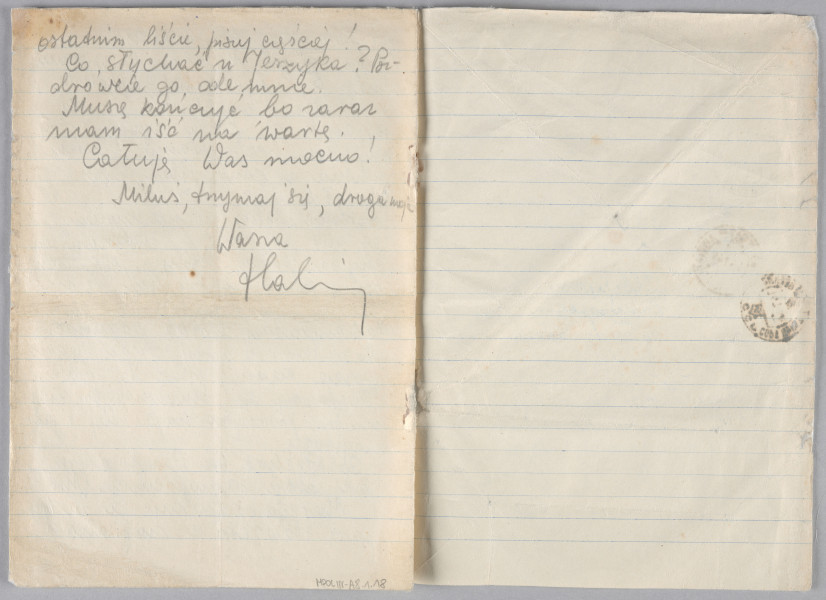 ostatnim liście, pisuj częściej!
Co słychać u Jerzyka? Poz-
drówcie go, ode mnie.
Muszę kończyć bo zaraz
mam iść na wartę.
Całuję Was mocno!
Miluś, trzymaj się, droga moja
Wasza
Halin